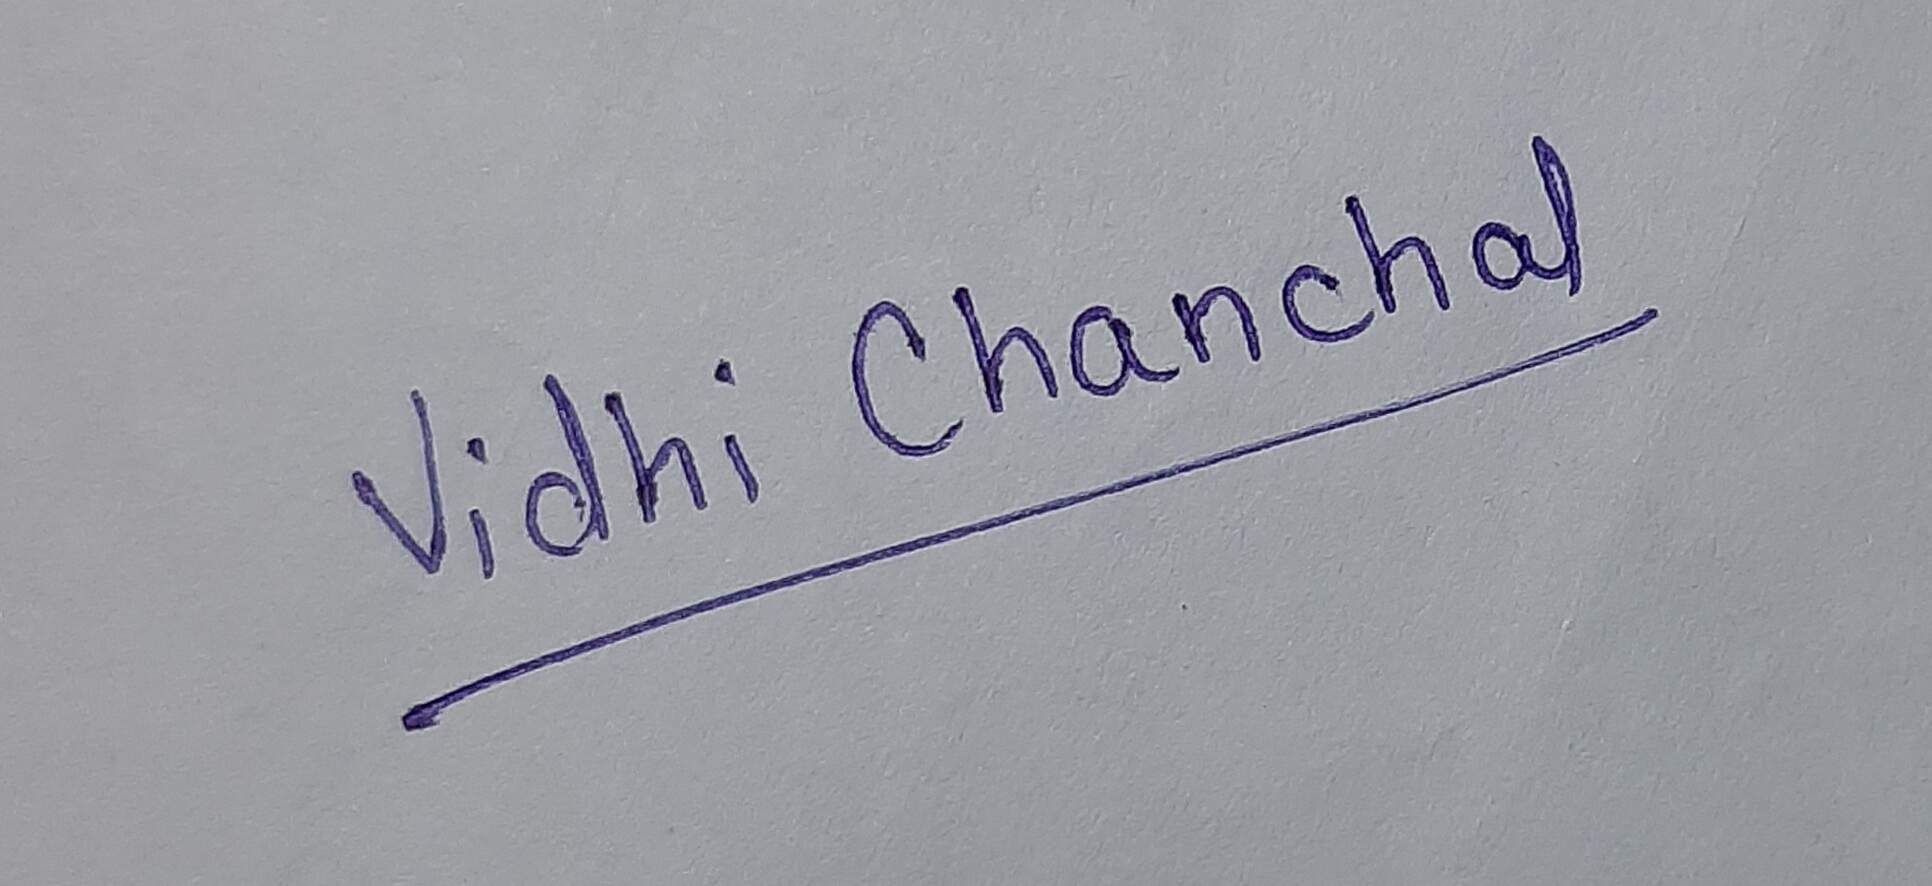 Vidhi Chanchal